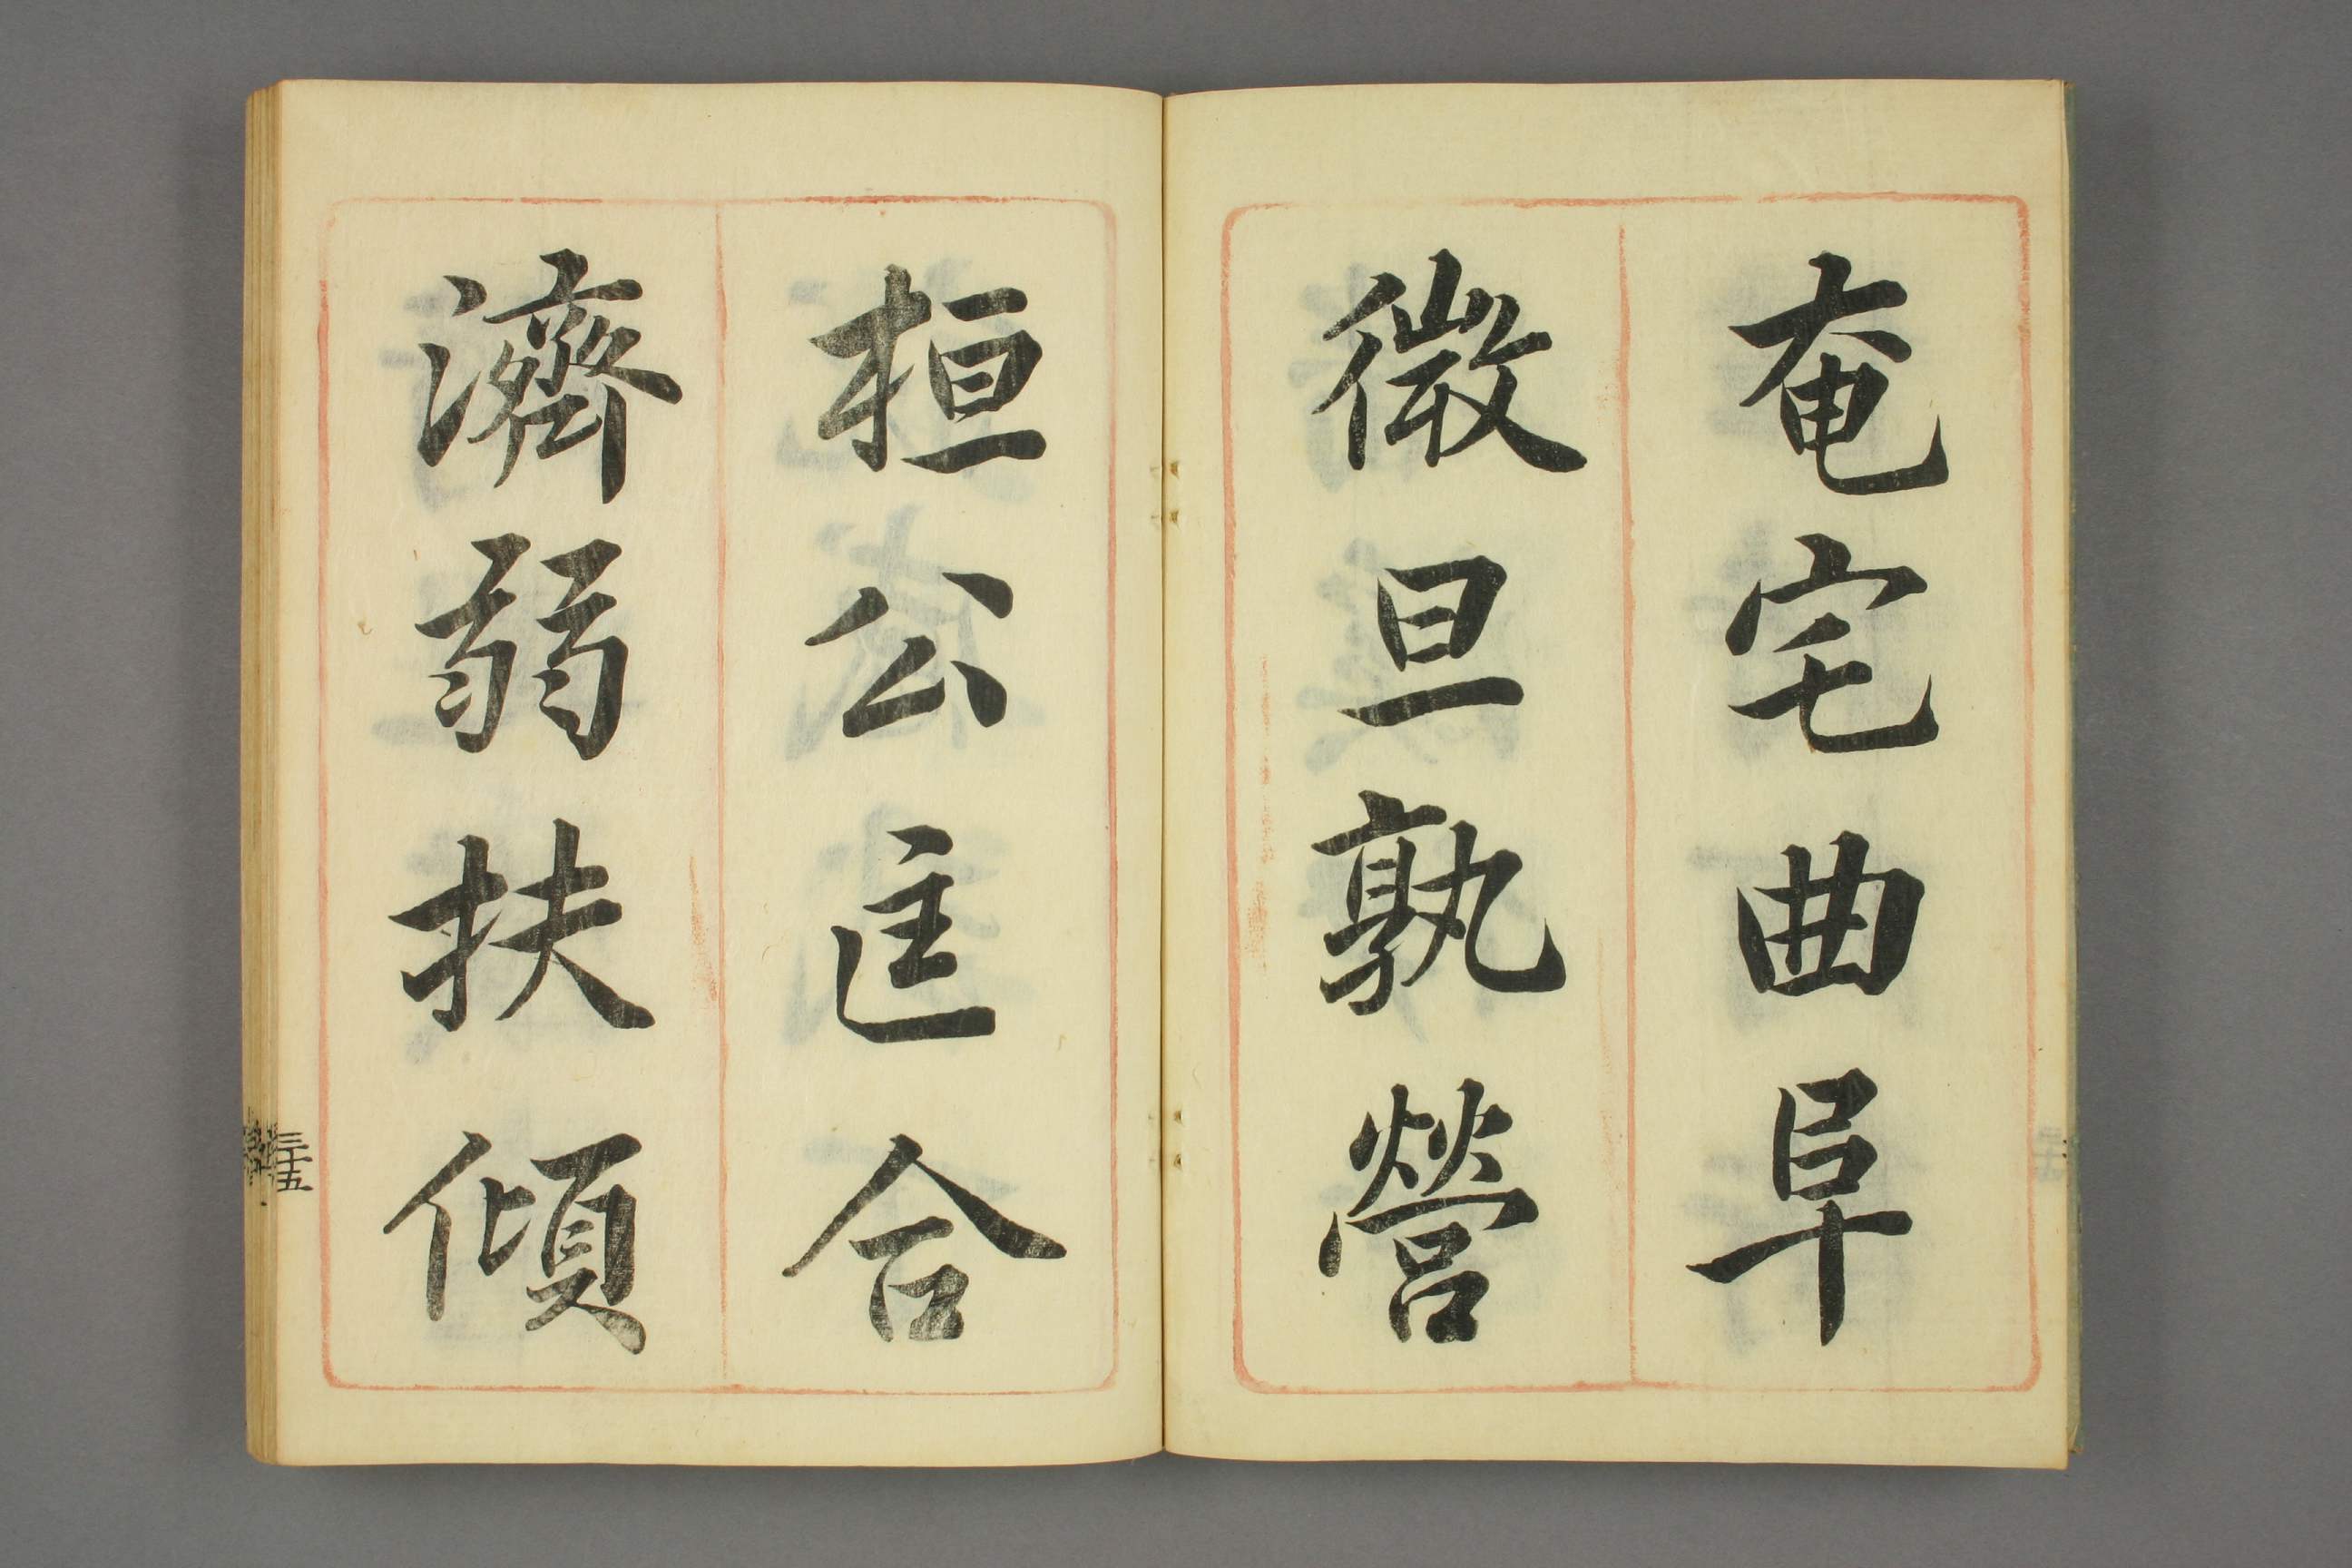 奄宅曲阜
微旦孰營
桓公匡合
濟弱扶傾
三十五